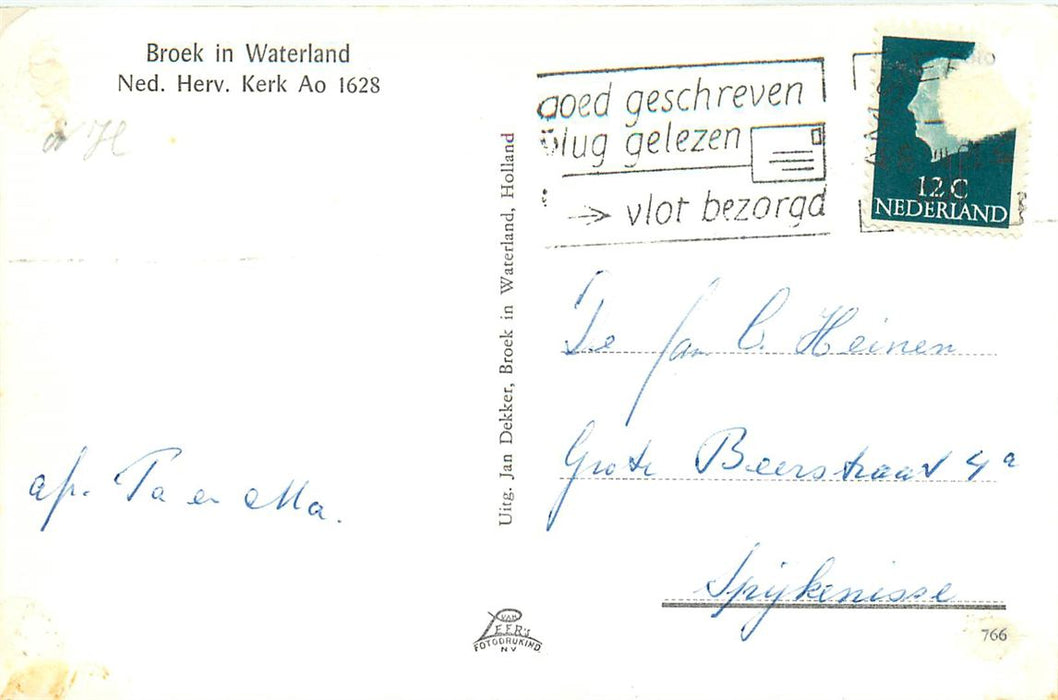 Broek in Waterland
Ned. Herv. Kerk Ao 1628
NH
afz. Pa en Ma.
Uitg. Jan Dekker, Broek in Waterland, Holland
VAN
LEER'S
FOTODRUKIND.
N V
goed geschreven
vlug gelezen
vlot bezorgd
12 C
NEDERLAND
De Jan C. Heinen
Grote Beerstraat 4a
Spijkenisse
766